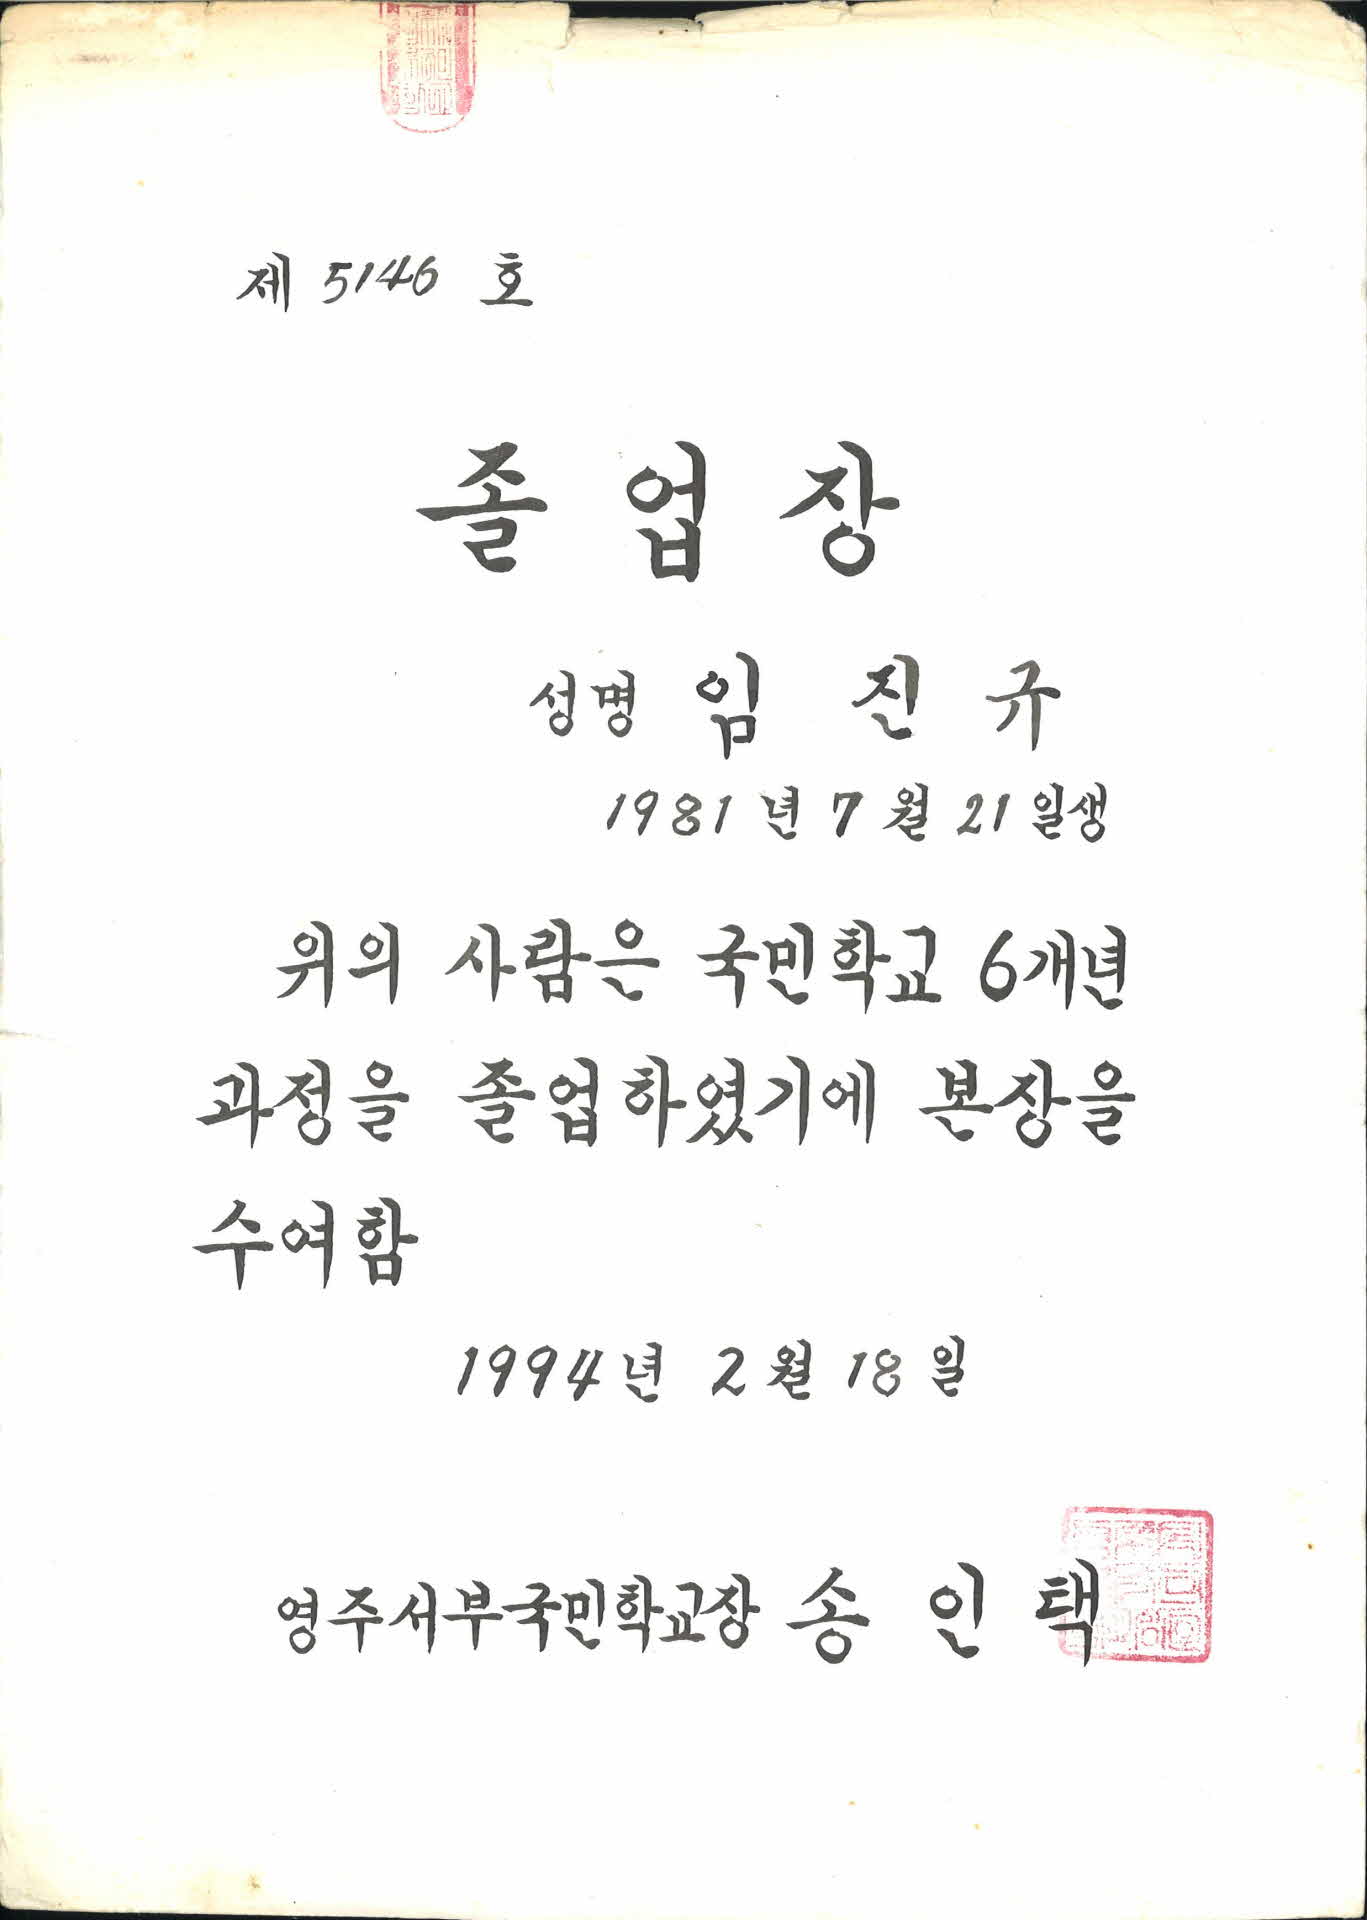 제 5146 호
졸업장
성명 임 진 규
1981 년 7 월 21 일생
위의 사람은 국민학교 6개년
과정을 졸업하였기에 본장을
수여함
1994 년 2 월 18 일
영주서부국민학교장 송 인 택